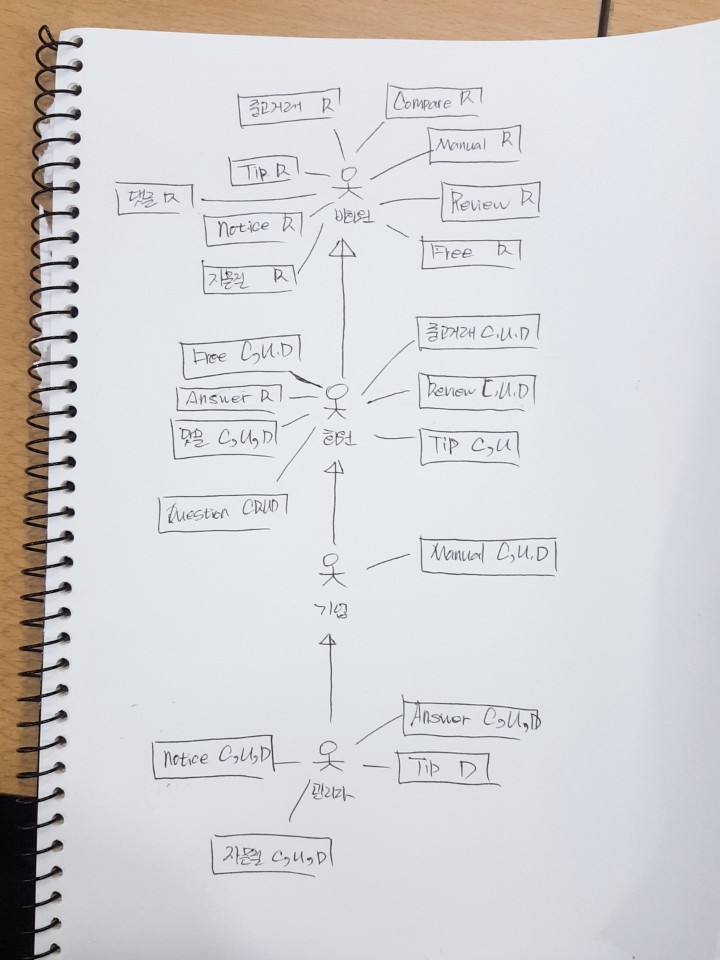 중고거래 R
Compare R
Manual R
Tip R
댓글 R
Review R
Notice R
비회원
Free R
자료실 R
중고거래 C,U,D
Free C,U,D
Review C,U,D
Answer R
회원
댓글 C,U,D
Tip C,U
Question CRUD
Manual C,U,D
기업
Answer C,U,D
Notice C,U,D
Tip D
관리자
자료실 C,U,D